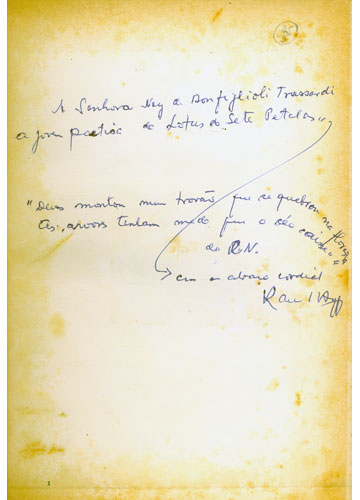 A Senhora Ney de Bonfiglioli Trussardi
a jovem poetisa do Lotus de Sete Petalas,,
"Deus montou num trovão que se quebrou na floresta
As arvores tinham medo que o céu caisse"
de R.N.
com o abraço cordial
Raul Bopp
1